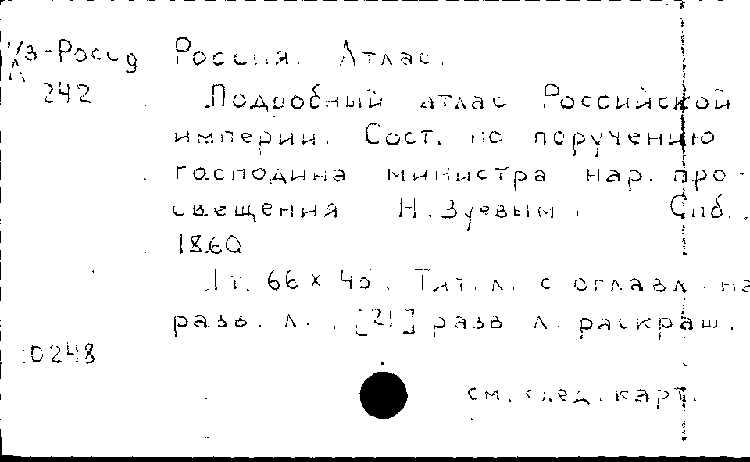 Россия. Атлас.
242
Подробный атлас Российской
империи. Сост. по поручению
господина министра нар. про-
свещения Н. Зуевым. Спб.,
1860
1 т. 66 × 45. Тит. л. с оглавл. на
разв. л., [21] разв л. раскраш.
0248
см. след. карт.